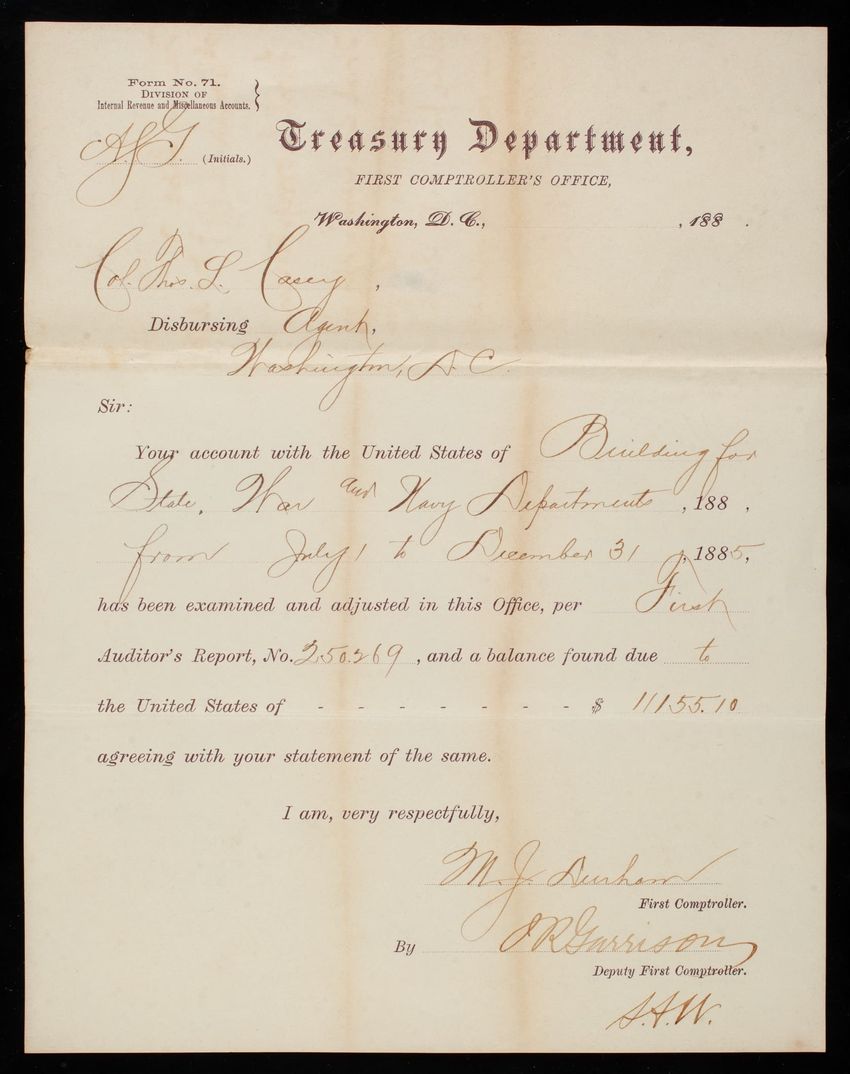 Form No. 71.
DIVISION OF
Internal Revenue and Miscellaneous Accounts. }
A.J.G. (Initials.)
Treasury Department,
FIRST COMPTROLLER'S OFFICE,
Washington, D. C., , 188 .
Col. Thos. L. Casey,
Disbursing Agent,
Washington, D.C.
Sir:
Your account with the United States of Building for
State, War and Navy Departments , 188 ,
from July 1 to December 31 , 1885,
has been examined and adjusted in this Office, per First
Auditor's Report, No. 250.269 , and a balance found due to
the United States of - - - - - - - $ 11155.10
agreeing with your statement of the same.
I am, very respectfully,
M. J. Durham
First Comptroller.
By J R Garrison
Deputy First Comptroller.
S.A.W.